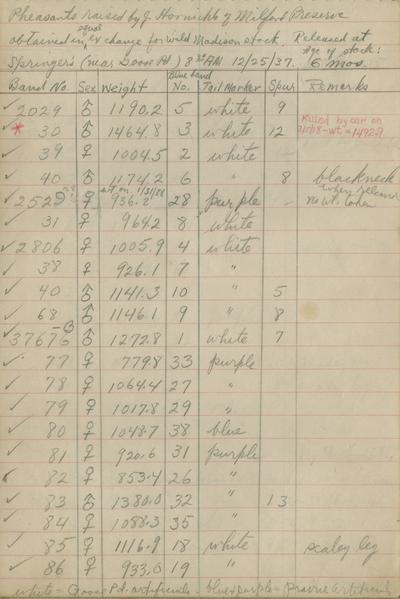 Pheasants raised by J. Hornickle of Milford Preserve
obtained in equal exchange for wild Madison stock. Released at
Springer's (near Goose Pd.) 8 30 AM 12/25/37. Age of stock: 6 mos.
Band No. Sex Weight Blue band No. Tail Marker Spur Remarks
✓ 2029 ♂ 1190.2 5 white 9
✓ * 30 ♂ 1464.8 3 white 12 Killed by car on wt. = 1492.9
✓ 39 ♀ 1004.5 2 white
✓ 40 ♂ 1174.2 6 8 blackneck
✓ 2529 ♀ wt. on 1/31/38 936.8 28 purple - when released no wt. taken
✓ 31 ♀ 964.2 8 white
✓ 2806 ♀ 1005.9 4 white
✓ 38 ♀ 926.1 7 "
✓ 40 ♂ 1141.3 10 " 5
✓ 68 ♂ 1146.1 9 " 8
✓ 37676 -B ♂ 1272.8 1 white 7
✓ 77 ♀ 779.8 33 purple
✓ 78 ♀ 1064.4 27 "
✓ 79 ♀ 1017.8 29 "
✓ 80 ♀ 1048.7 38 blue
✓ 81 ♀ 920.6 31 purple
✓ 82 ♀ 853.4 26 "
✓ 83 ♂ 1380.0 32 " 13
✓ 84 ♀ 1088.3 35 "
✓ 85 ♀ 1116.9 18 white scaley leg
✓ 86 ♀ 933.0 19 "
white = Goose Pd. artificials - blue & purple = Prairie artificials